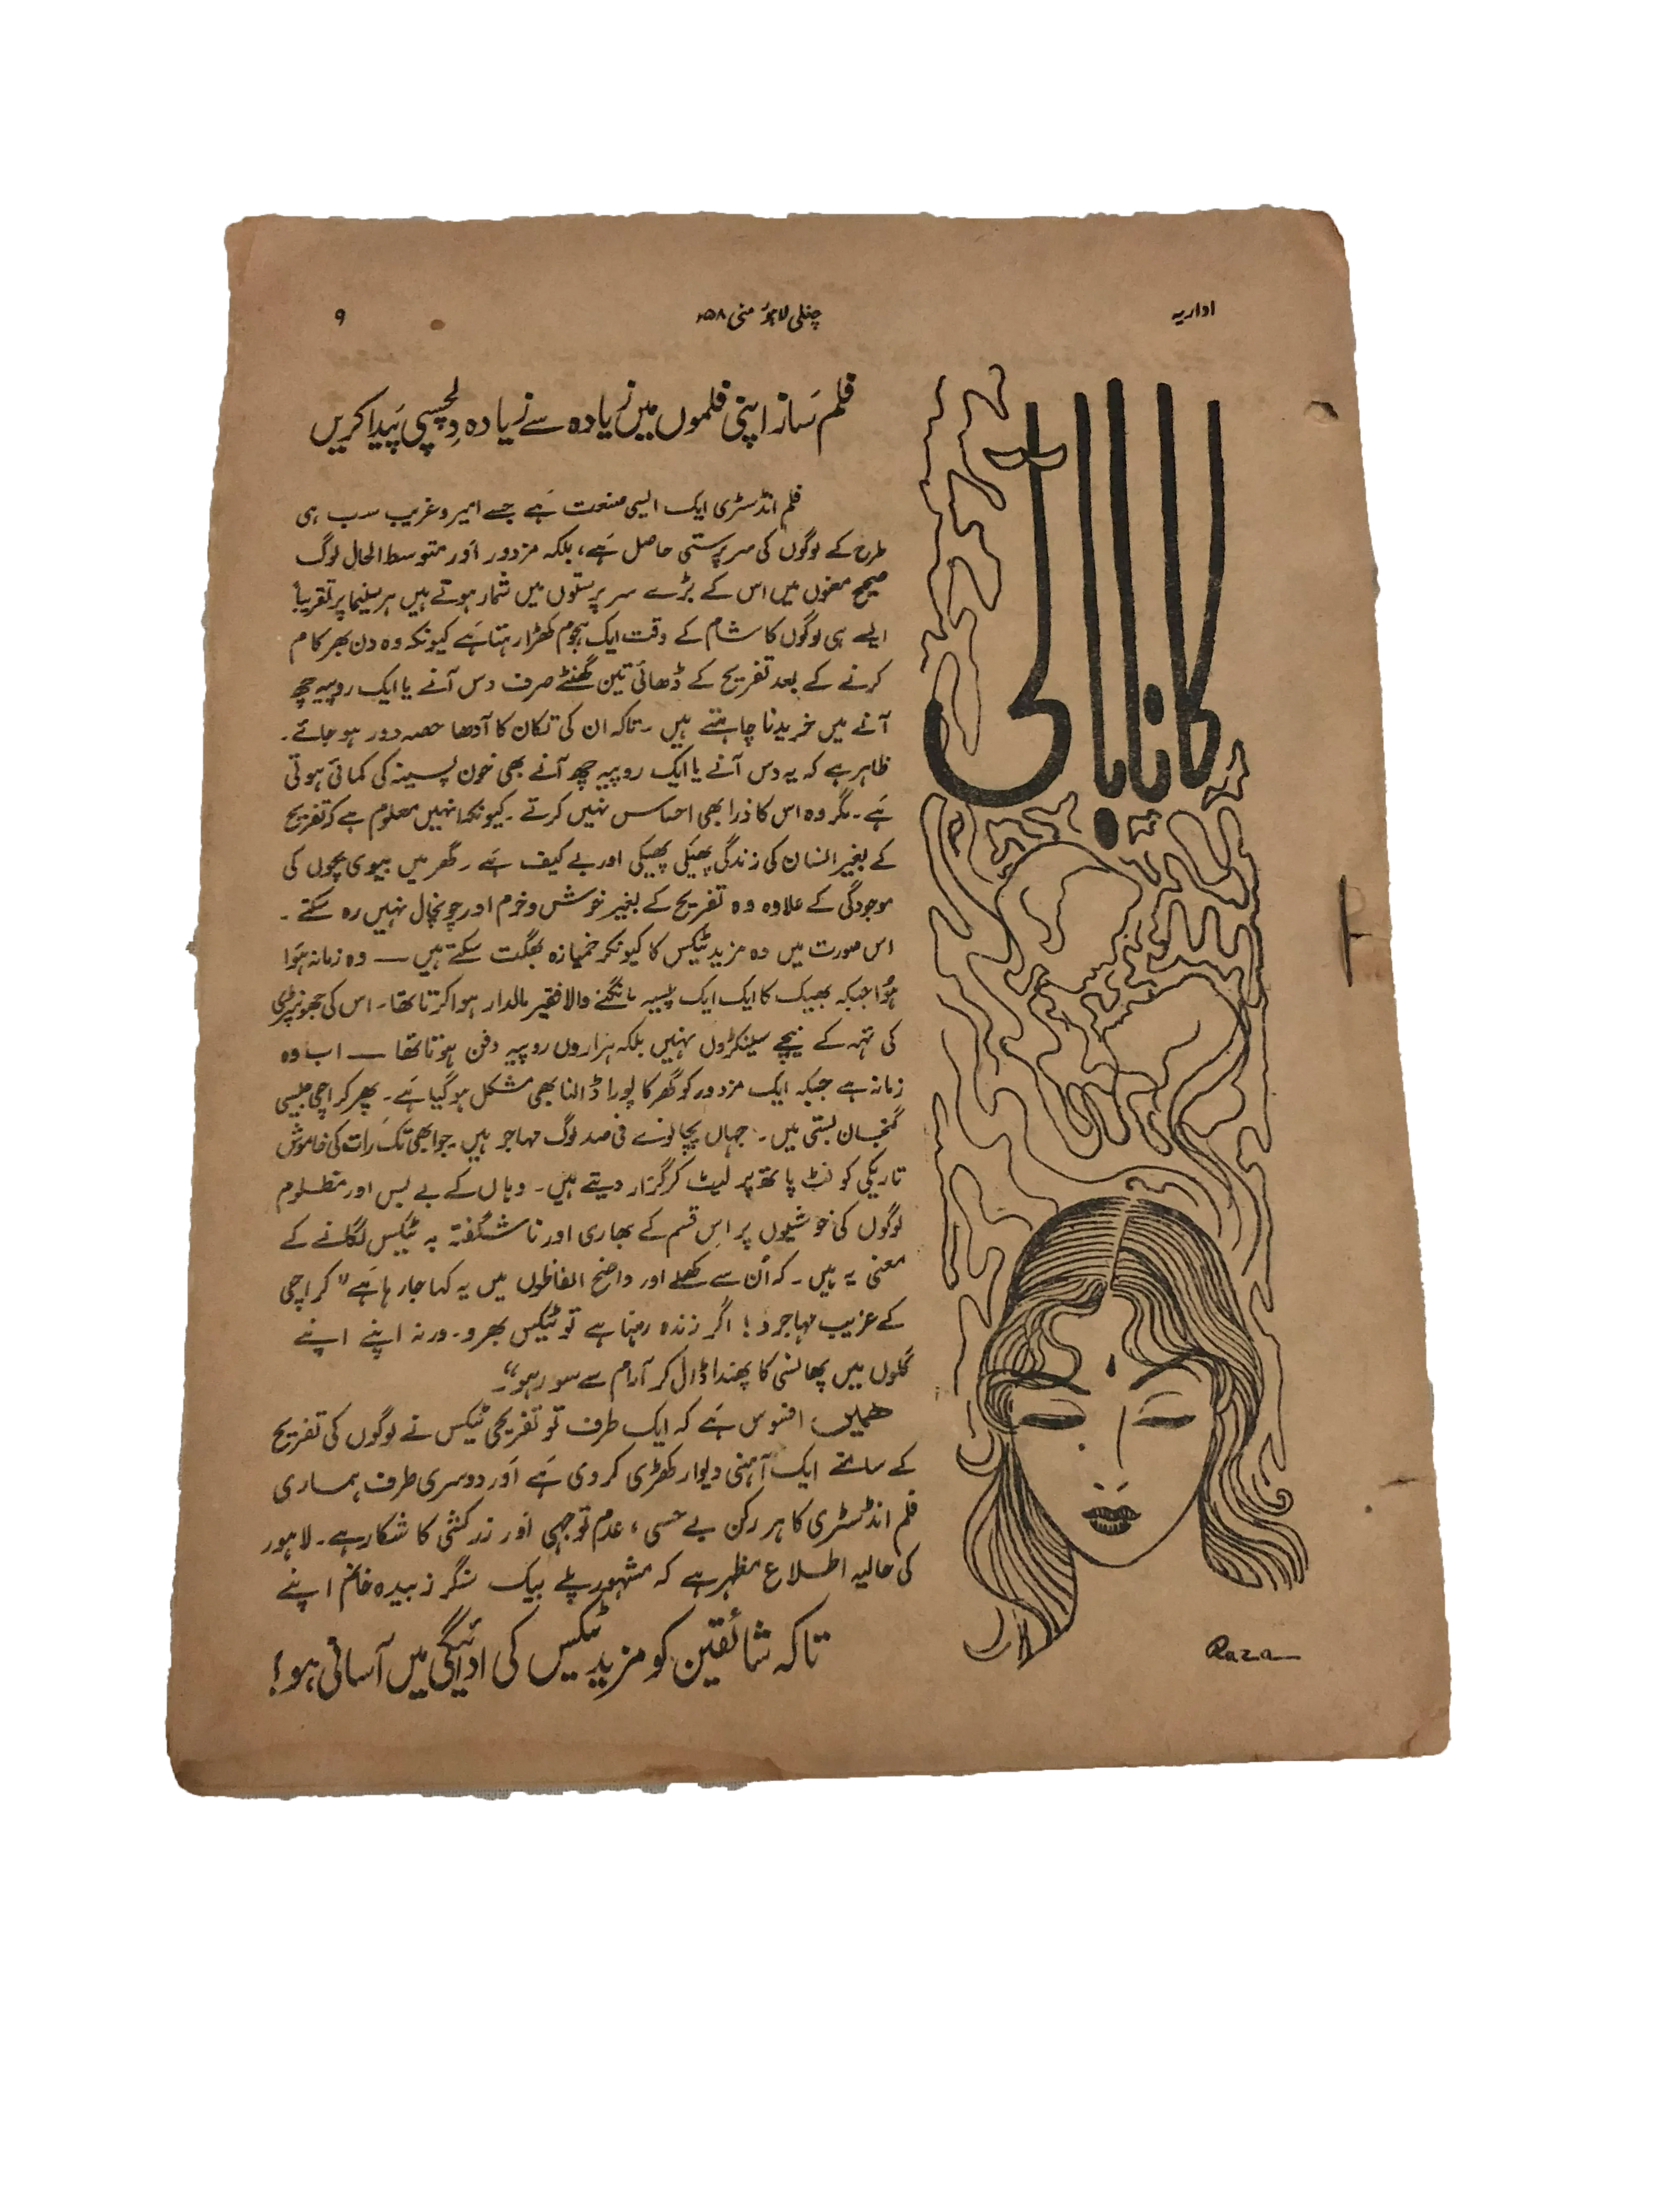 اداریہ
چغلی لاہور مئی ۵۸ء
۹
کانا باتی
فلم ساز اپنی فلموں میں زیادہ سے زیادہ دلچسپی پیدا کریں
فلم انڈسٹری ایک ایسی صنعت ہے جسے امیر و غریب سب ہی
طرح کے لوگوں کی سرپرستی حاصل ہے، بلکہ مزدور اور متوسط الحال لوگ
صحیح معنوں میں اس کے بڑے سرپرستوں میں شمار ہوتے ہیں ہر سینما پر تقریباً
ایسے ہی لوگوں کا شام کے وقت ایک ہجوم کھڑا رہتا ہے کیونکہ وہ دن بھر کام
کرنے کے بعد تفریح کے ڈھائی تین گھنٹے صرف دس آنے یا ایک روپیہ چھ
آنے میں خریدنا چاہتے ہیں ۔ تاکہ ان کی تکان کا آدھا حصہ دور ہو جائے ۔
ظاہر ہے کہ یہ دس آنے یا ایک روپیہ چھ آنے بھی خون پسینہ کی کمائی ہوتی
ہے ۔ مگر وہ اس کا ذرا بھی احساس نہیں کرتے ۔ کیونکہ انہیں معلوم ہے کہ تفریح
کے بغیر انسان کی زندگی پھیکی پھیکی اور بے کیف ہے ۔ گھر میں بیوی بچوں کی
موجودگی کے علاوہ وہ تفریح کے بغیر خوش و خرم اور چونچال نہیں رہ سکتے ۔
اس صورت میں وہ مزید ٹیکس کا کیونکر خمیازہ بھگت سکتے ہیں — وہ زمانہ ہوا
ہوا جبکہ بھیک کا ایک ایک پیسہ مانگنے والا فقیر مالدار ہوا کرتا تھا ۔ اس کی جھونپڑی
کی تہہ کے نیچے سینکڑوں نہیں بلکہ ہزاروں روپیہ دفن ہوتا تھا — اب وہ
زمانہ ہے جبکہ ایک مزدور کو گھر کا پورا ڈالنا بھی مشکل ہو گیا ہے ۔ پھر کراچی جیسی
گنجان بستی میں ۔ جہاں پچانوے فی صد لوگ مہاجر ہیں ۔ جو ابھی تک رات کی خاموش
تاریکی کو فٹ پاتھ پر لیٹ کر گزار دیتے ہیں ۔ وہاں کے بے بس اور مظلوم
لوگوں کی خوشیوں پر اس قسم کے بھاری اور ناشگفتہ بہ ٹیکس لگانے کے
معنی یہ ہیں ۔ کہ اُن سے کھلے اور واضح الفاظوں میں یہ کہا جا رہا ہے "کراچی
کے غریب مہاجرو! اگر زندہ رہنا ہے تو ٹیکس بھرو ۔ ورنہ اپنے اپنے
گلوں میں پھانسی کا پھندا ڈال کر آرام سے سو رہو"۔
ہمیں افسوس ہے کہ ایک طرف تو تفریحی ٹیکس نے لوگوں کی تفریح
کے سامنے ایک آہنی دیوار کھڑی کر دی ہے اور دوسری طرف ہماری
فلم انڈسٹری کا ہر رکن بے حسی، عدم توجہی اور زر کشی کا شکار ہے ۔ لاہور
کی حالیہ اطلاع مظہر ہے کہ مشہور پلے بیک سنگر زبیدہ خانم اپنے
تاکہ شائقین کو مزید ٹیکس کی ادائیگی میں آسانی ہو!
Raza